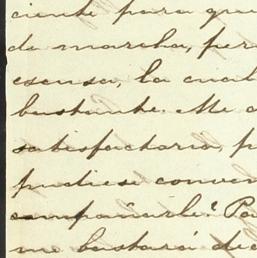 ciente para que
de marcha, per
escusa, la cual
bastante. Me
satisfactoria, p
pudiese conven
compañarle? Pa
me bastará dec